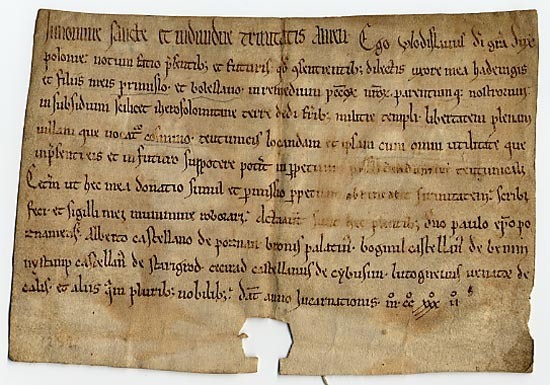 In nomine sancte et individue trinitatis amen. Ego wlodislauus di gra dux
polonie. notum facio psentib; et futuris qd ꝯsentientib; dilectis uxore mea hadewigis
et filiis meis primislio et bolezlao in remedium pctor meor parentumq; nostrorum
in subsidium scilicet iherosolimitane terre dedi frib; militie templi libertatem plenam
uillam que uocat cosmino teutunicis locandam et ipsam cum omni utilitate que
in psenti est et in futuro suppetere poterit in ppetuum possidendam teutunicali
Ceterum ut hec mea donatio simul et pmissio ppetuam obtineat firmitatem scribi
feci et sigilli mei munimine roborari. Acta sunt hec psentib; dno paulo epo po
znaniensi. alberto castellano de poznan bronis palatin bogumil castellan de
castellan de starigrod cecrad castellanus de cybusun lutogneuus uenator de
calis. et aliis qm plurib; nobilib; Dat anno Incarnationis m cc xxx ii